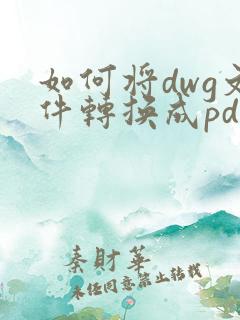 如何将dwg文
件轉換成pd
秦財華
未经同意禁止转载